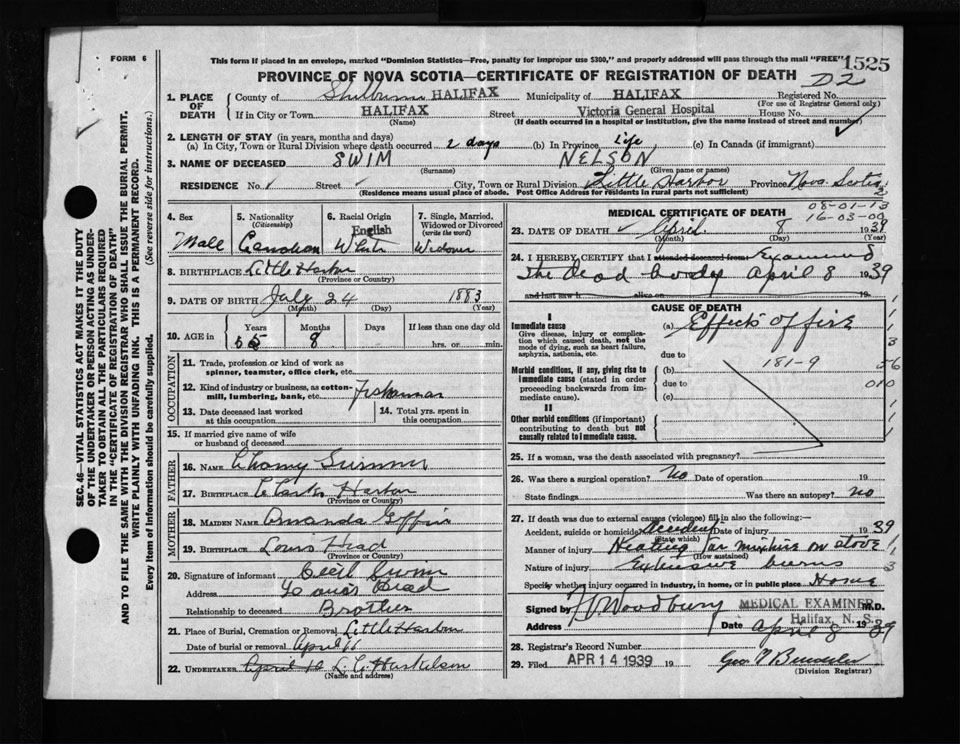 FORM 6
This form if placed in an envelope, marked "Dominion Statistics—Free, penalty for improper use $300," and properly addressed will pass through the mail "FREE" 1525
PROVINCE OF NOVA SCOTIA—CERTIFICATE OF REGISTRATION OF DEATH D2
1. PLACE OF DEATH County of Shelburne HALIFAX Municipality of HALIFAX Registered No.
(For use of Registrar General only)
If in City or Town HALIFAX Street Victoria General Hospital House No.
(Name) (If death occurred in a hospital or institution, give the name instead of street and number)
2. LENGTH OF STAY (in years, months and days)
(a) In City, Town or Rural Division where death occurred 2 days (b) In Province Life (c) In Canada (if immigrant)
3. NAME OF DECEASED SWIM NELSON
(Surname) (Given name or names)
RESIDENCE No. Street City, Town or Rural Division Little Harbor Province Nova Scotia
(Residence means usual place of abode. Post Office Address for residents in rural parts not sufficient)
4. Sex Male
5. Nationality (Citizenship) Canadian
6. Racial Origin English White
7. Single, Married, Widowed or Divorced (write the word) Widower
8. BIRTHPLACE Little Harbor
(Province or Country)
9. DATE OF BIRTH July 24 1883
(Month) (Day) (Year)
10. AGE in Years Months Days If less than one day old
55 8 hrs. or min.
OCCUPATION
11. Trade, profession or kind of work as spinner, teamster, office clerk, etc.
12. Kind of industry or business, as cotton-mill, lumbering, bank, etc. Fisherman
13. Date deceased last worked at this occupation
14. Total yrs. spent in this occupation
15. If married give name of wife or husband of deceased
FATHER
16. NAME
17. BIRTHPLACE Clarks Harbor
(Province or Country)
MOTHER
18. MAIDEN NAME Amanda
19. BIRTHPLACE Louis Head
(Province or Country)
20. Signature of informant Cecil Swim
Address Louis Head
Relationship to deceased Brother
21. Place of Burial, Cremation or Removal Little Harbor
Date of burial or removal April
22. UNDERTAKER April 10 L. C. Huskilson
(Name and address)
MEDICAL CERTIFICATE OF DEATH
08-01-13
16-03-09
23. DATE OF DEATH April 8 1939
(Month) (Day) (Year)
24. I HEREBY CERTIFY that I attended deceased from Examined
The dead body April 8 1939
and last saw h alive on 19
CAUSE OF DEATH
I
Immediate cause
Give disease, injury or complication which caused death, not the mode of dying, such as heart failure, asphyxia, asthenia, etc.
(a) Effects of fire
due to
Morbid conditions, if any, giving rise to immediate cause (stated in order proceeding backwards from immediate cause).
(b) 181-9 56
due to 010
(c)
II
Other morbid conditions (if important) contributing to death but not causally related to immediate cause.
25. If a woman, was the death associated with pregnancy?
26. Was there a surgical operation? No Date of operation 19
State findings Was there an autopsy? no
27. If death was due to external causes (violence) fill in also the following:—
Accident, suicide or homicide? Accident Date of injury 1939
(State which)
Manner of injury Heating tar mixture on stove
(How sustained)
Nature of injury Extensive burns
Specify whether injury occurred in industry, in home, or in public place Home
Signed by Woodbury MEDICAL EXAMINER M.D.
Halifax, N. S.
Address Date April 8 1939
28. Registrar's Record Number
29. Filed APR 14 1939 29. Geo.
(Division Registrar)
SEC. 46—VITAL STATISTICS ACT MAKES IT THE DUTY
OF THE UNDERTAKER OR PERSON ACTING AS UNDER-
TAKER TO OBTAIN ALL THE PARTICULARS REQUIRED
IN THE "CERTIFICATE OF REGISTRATION OF DEATH"
AND TO FILE THE SAME WITH THE DIVISION REGISTRAR WHO SHALL ISSUE THE BURIAL PERMIT.
WRITE PLAINLY WITH UNFADING INK. THIS IS A PERMANENT RECORD.
Every item of information should be carefully supplied. (See reverse side for instructions.)